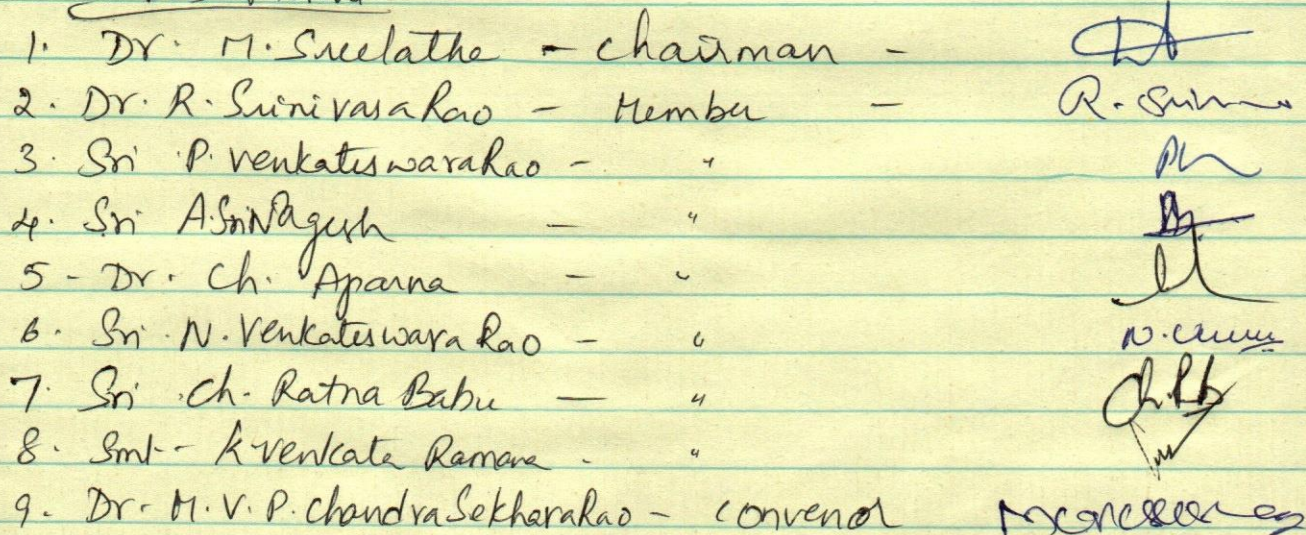 1. Dr. M. Sreelatha - chairman -
2. Dr. R. Srinivasa Rao - Member - R. Srin
3. Sri P. Venkateswara Rao - "
4. Sri A. Sri Nagesh - "
5 - Dr. Ch. Aparna - "
6. Sri N. Venkateswara Rao - " N.
7. Sri Ch. Ratna Babu - " Ch. Rb
8. Smt - K Venkata Ramana - "
9. Dr. M. V. P. Chandra Sekhara Rao - convenor